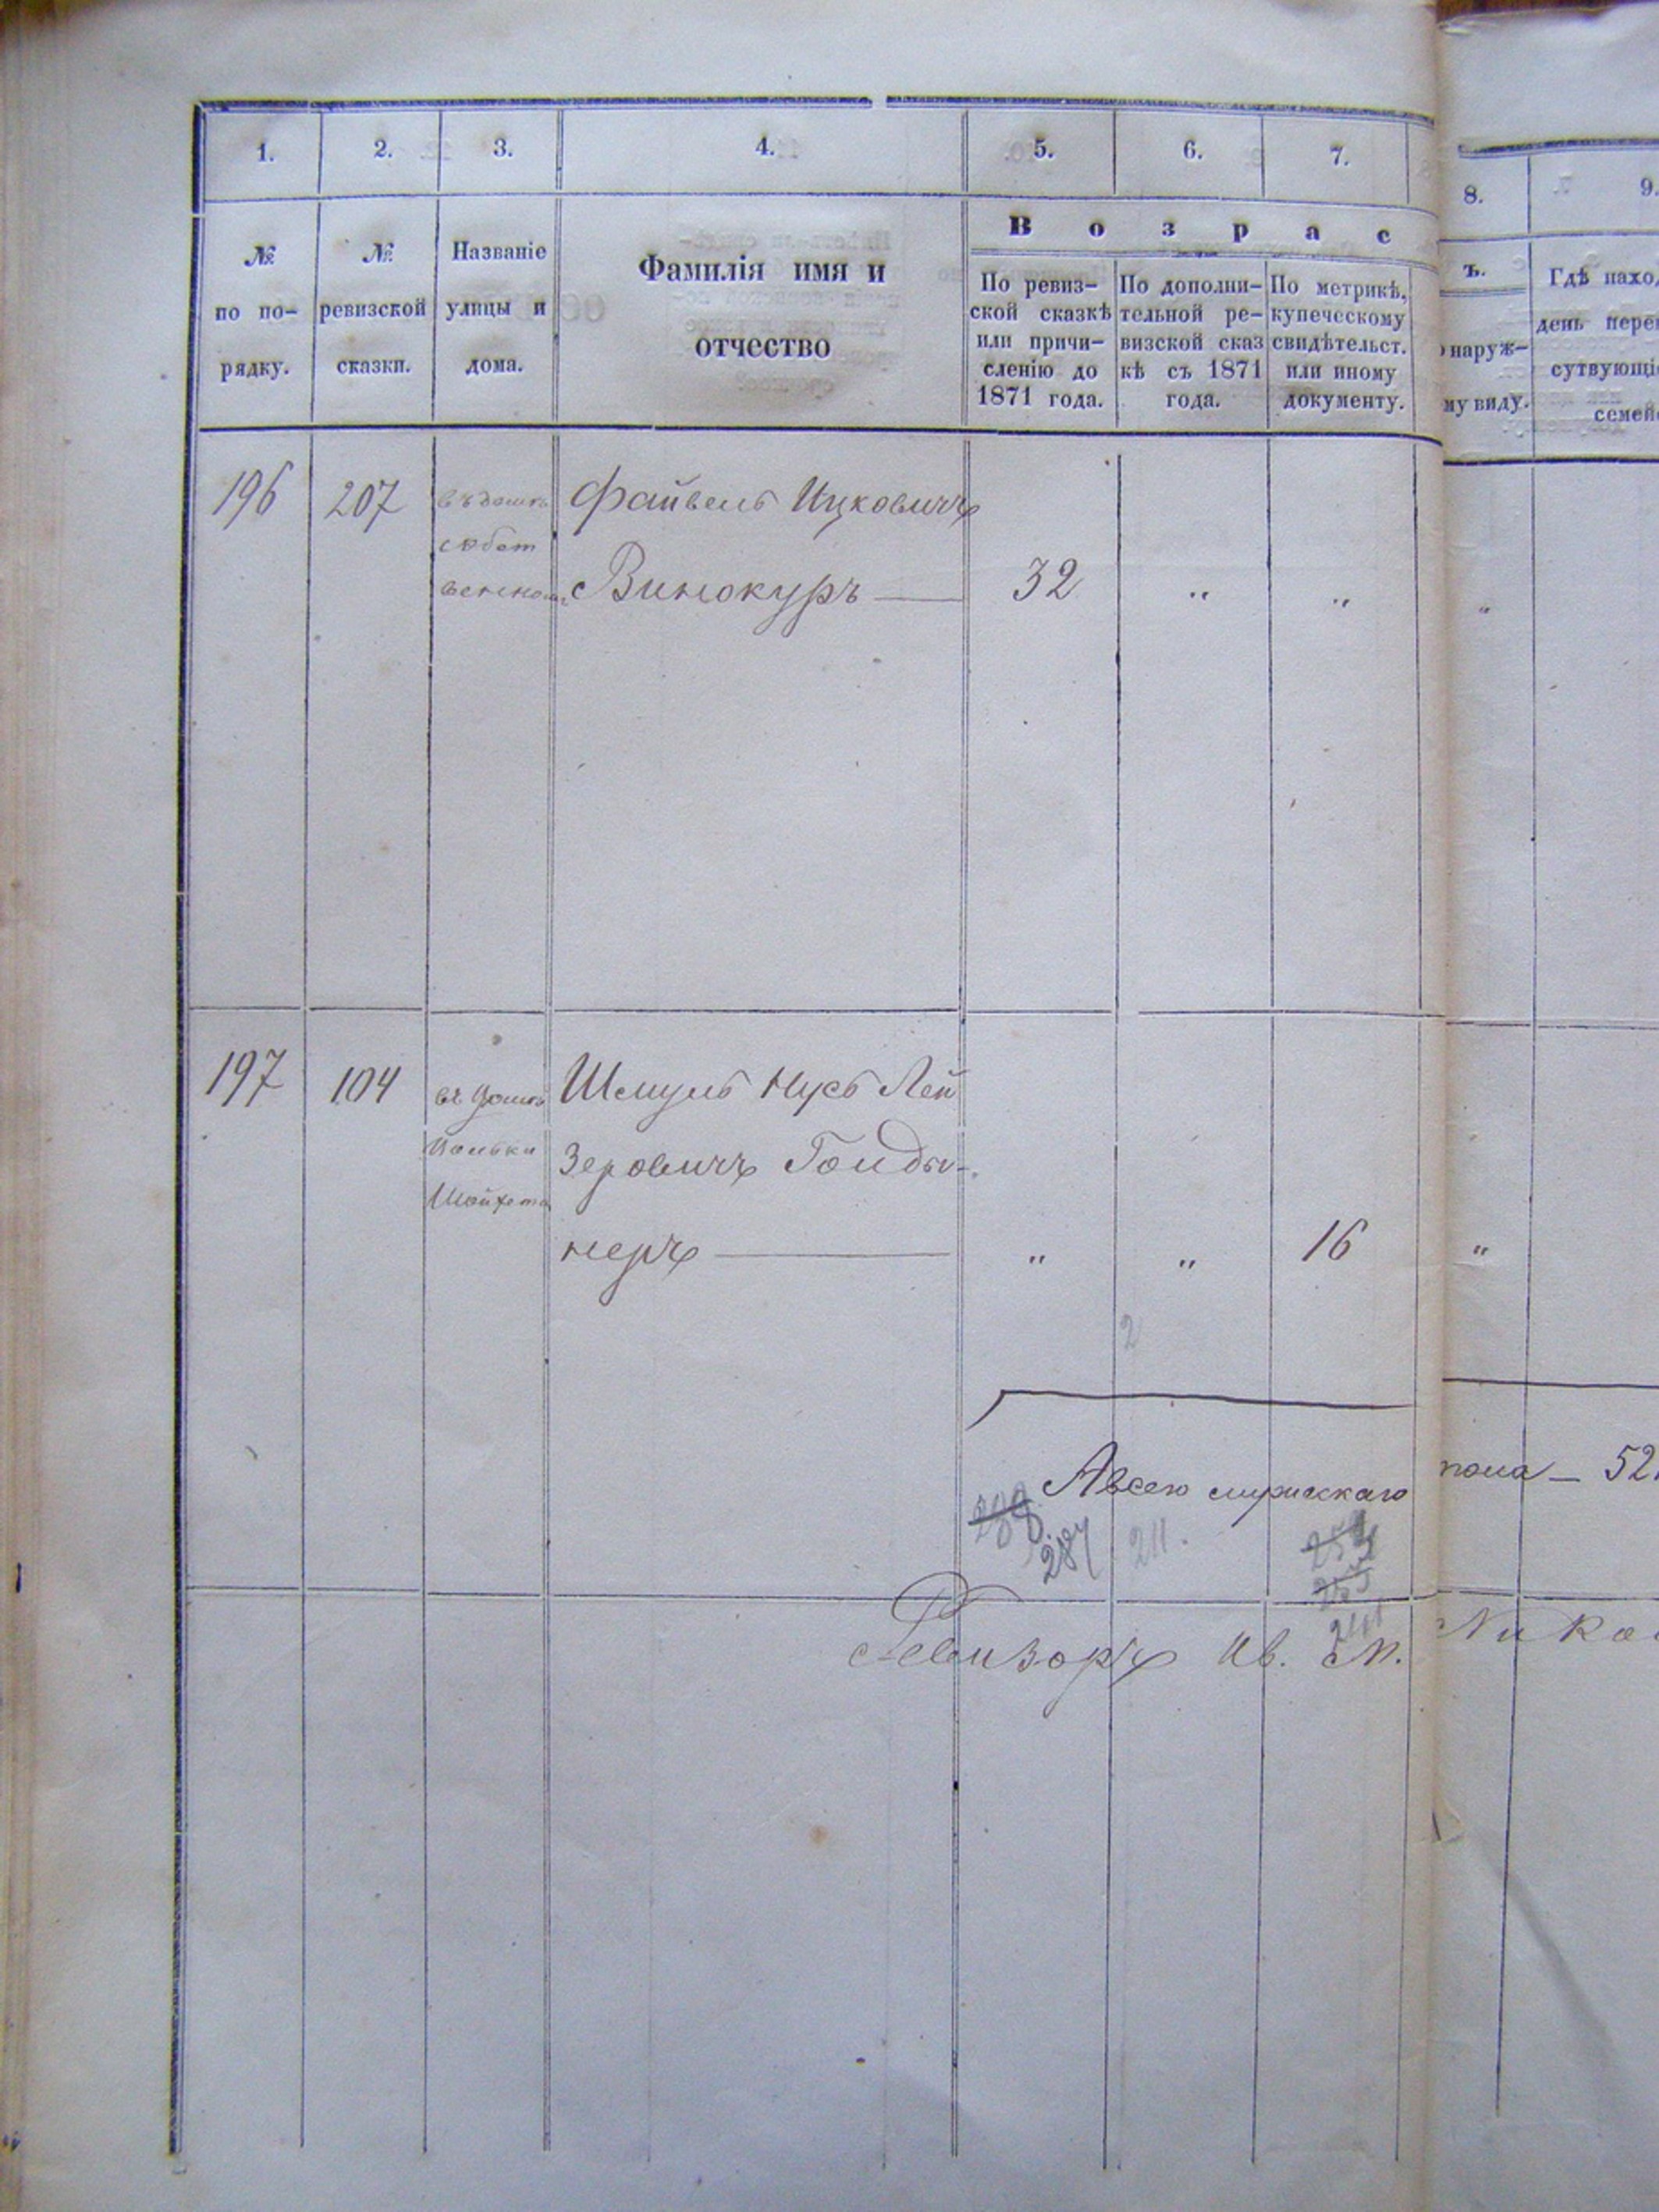 1. 2. 3. 4. 5. 6. 7. 8. 9.
№ по по-рядку.
№ ревизской сказки.
Названіе улицы и дома.
Фамилія имя и отчество
В о з р а с ъ.
По ревиз-ской сказкѣ или причи-сленію до 1871 года.
По дополни-тельной ре-визской сказ кѣ съ 1871 года.
По метрикѣ, купеческому свидѣтельст. или иному документу.
наруж-
му виду.
Гдѣ наход
день пере
сутвующі
семей
196 207 въ домѣ Файвель Ицковичъ
собст
венном Винокуръ — 32 " " "
197 104 въ домѣ Шмуль Нусь Лей
зеровичъ Гонды-
Шойхета
неръ — " " 16 "
2
А всего мужскаго пола — 52
287 211.
Ревизоръ Ив. М. Нико